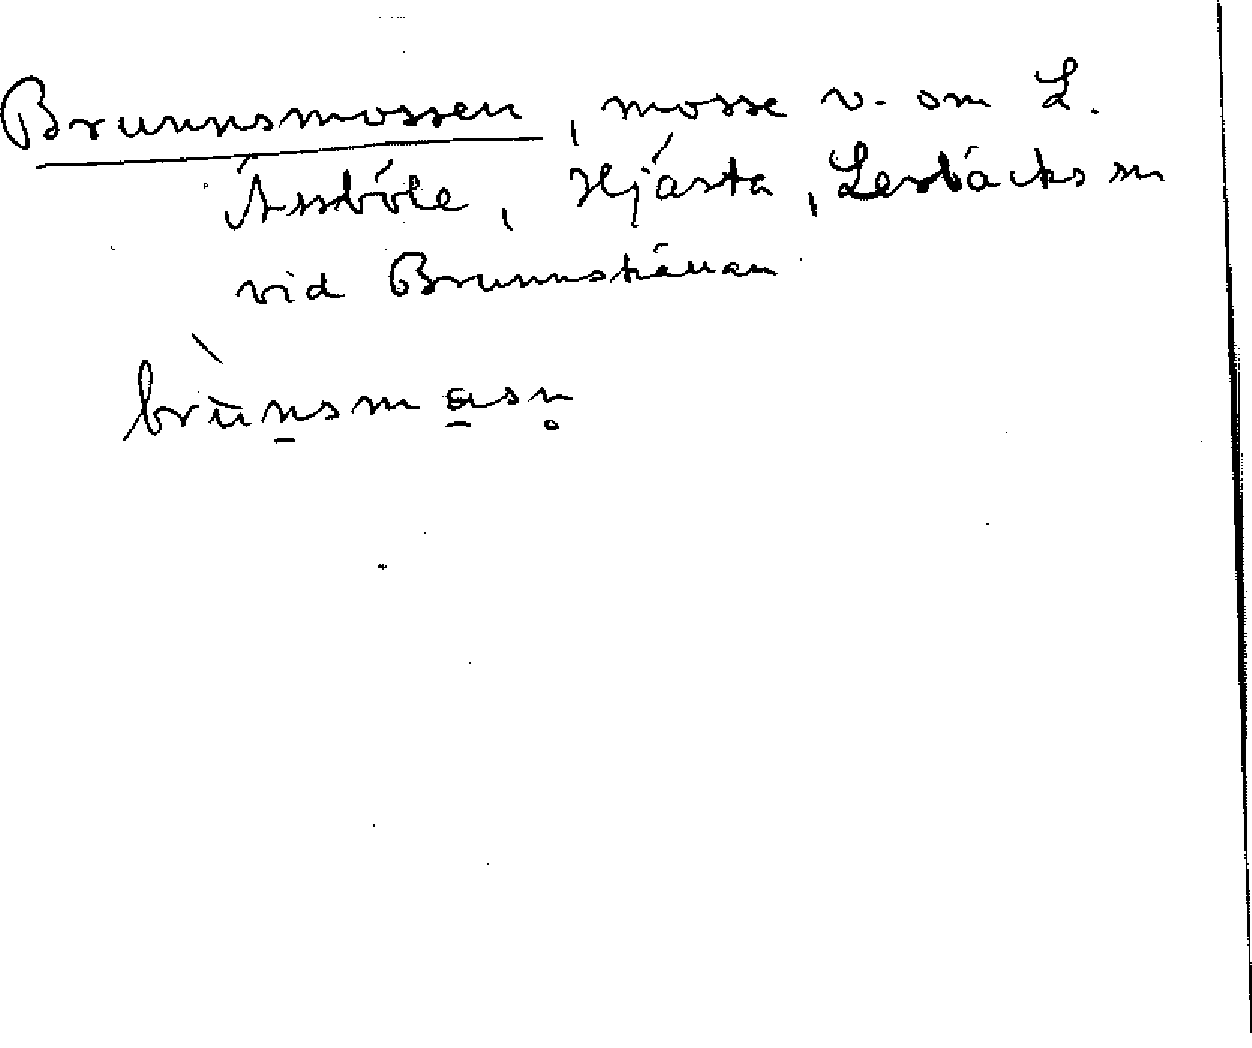 Brunnsmossen, mosse v. om L.
Assböle, Hjärta, Lerbäcks sn
vid Brunnskällan
brunsmasn